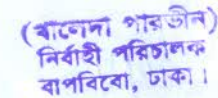 (খালেদা পারভীন)
নির্বাহী পরিচালক
বাপবিবো, ঢাকা।